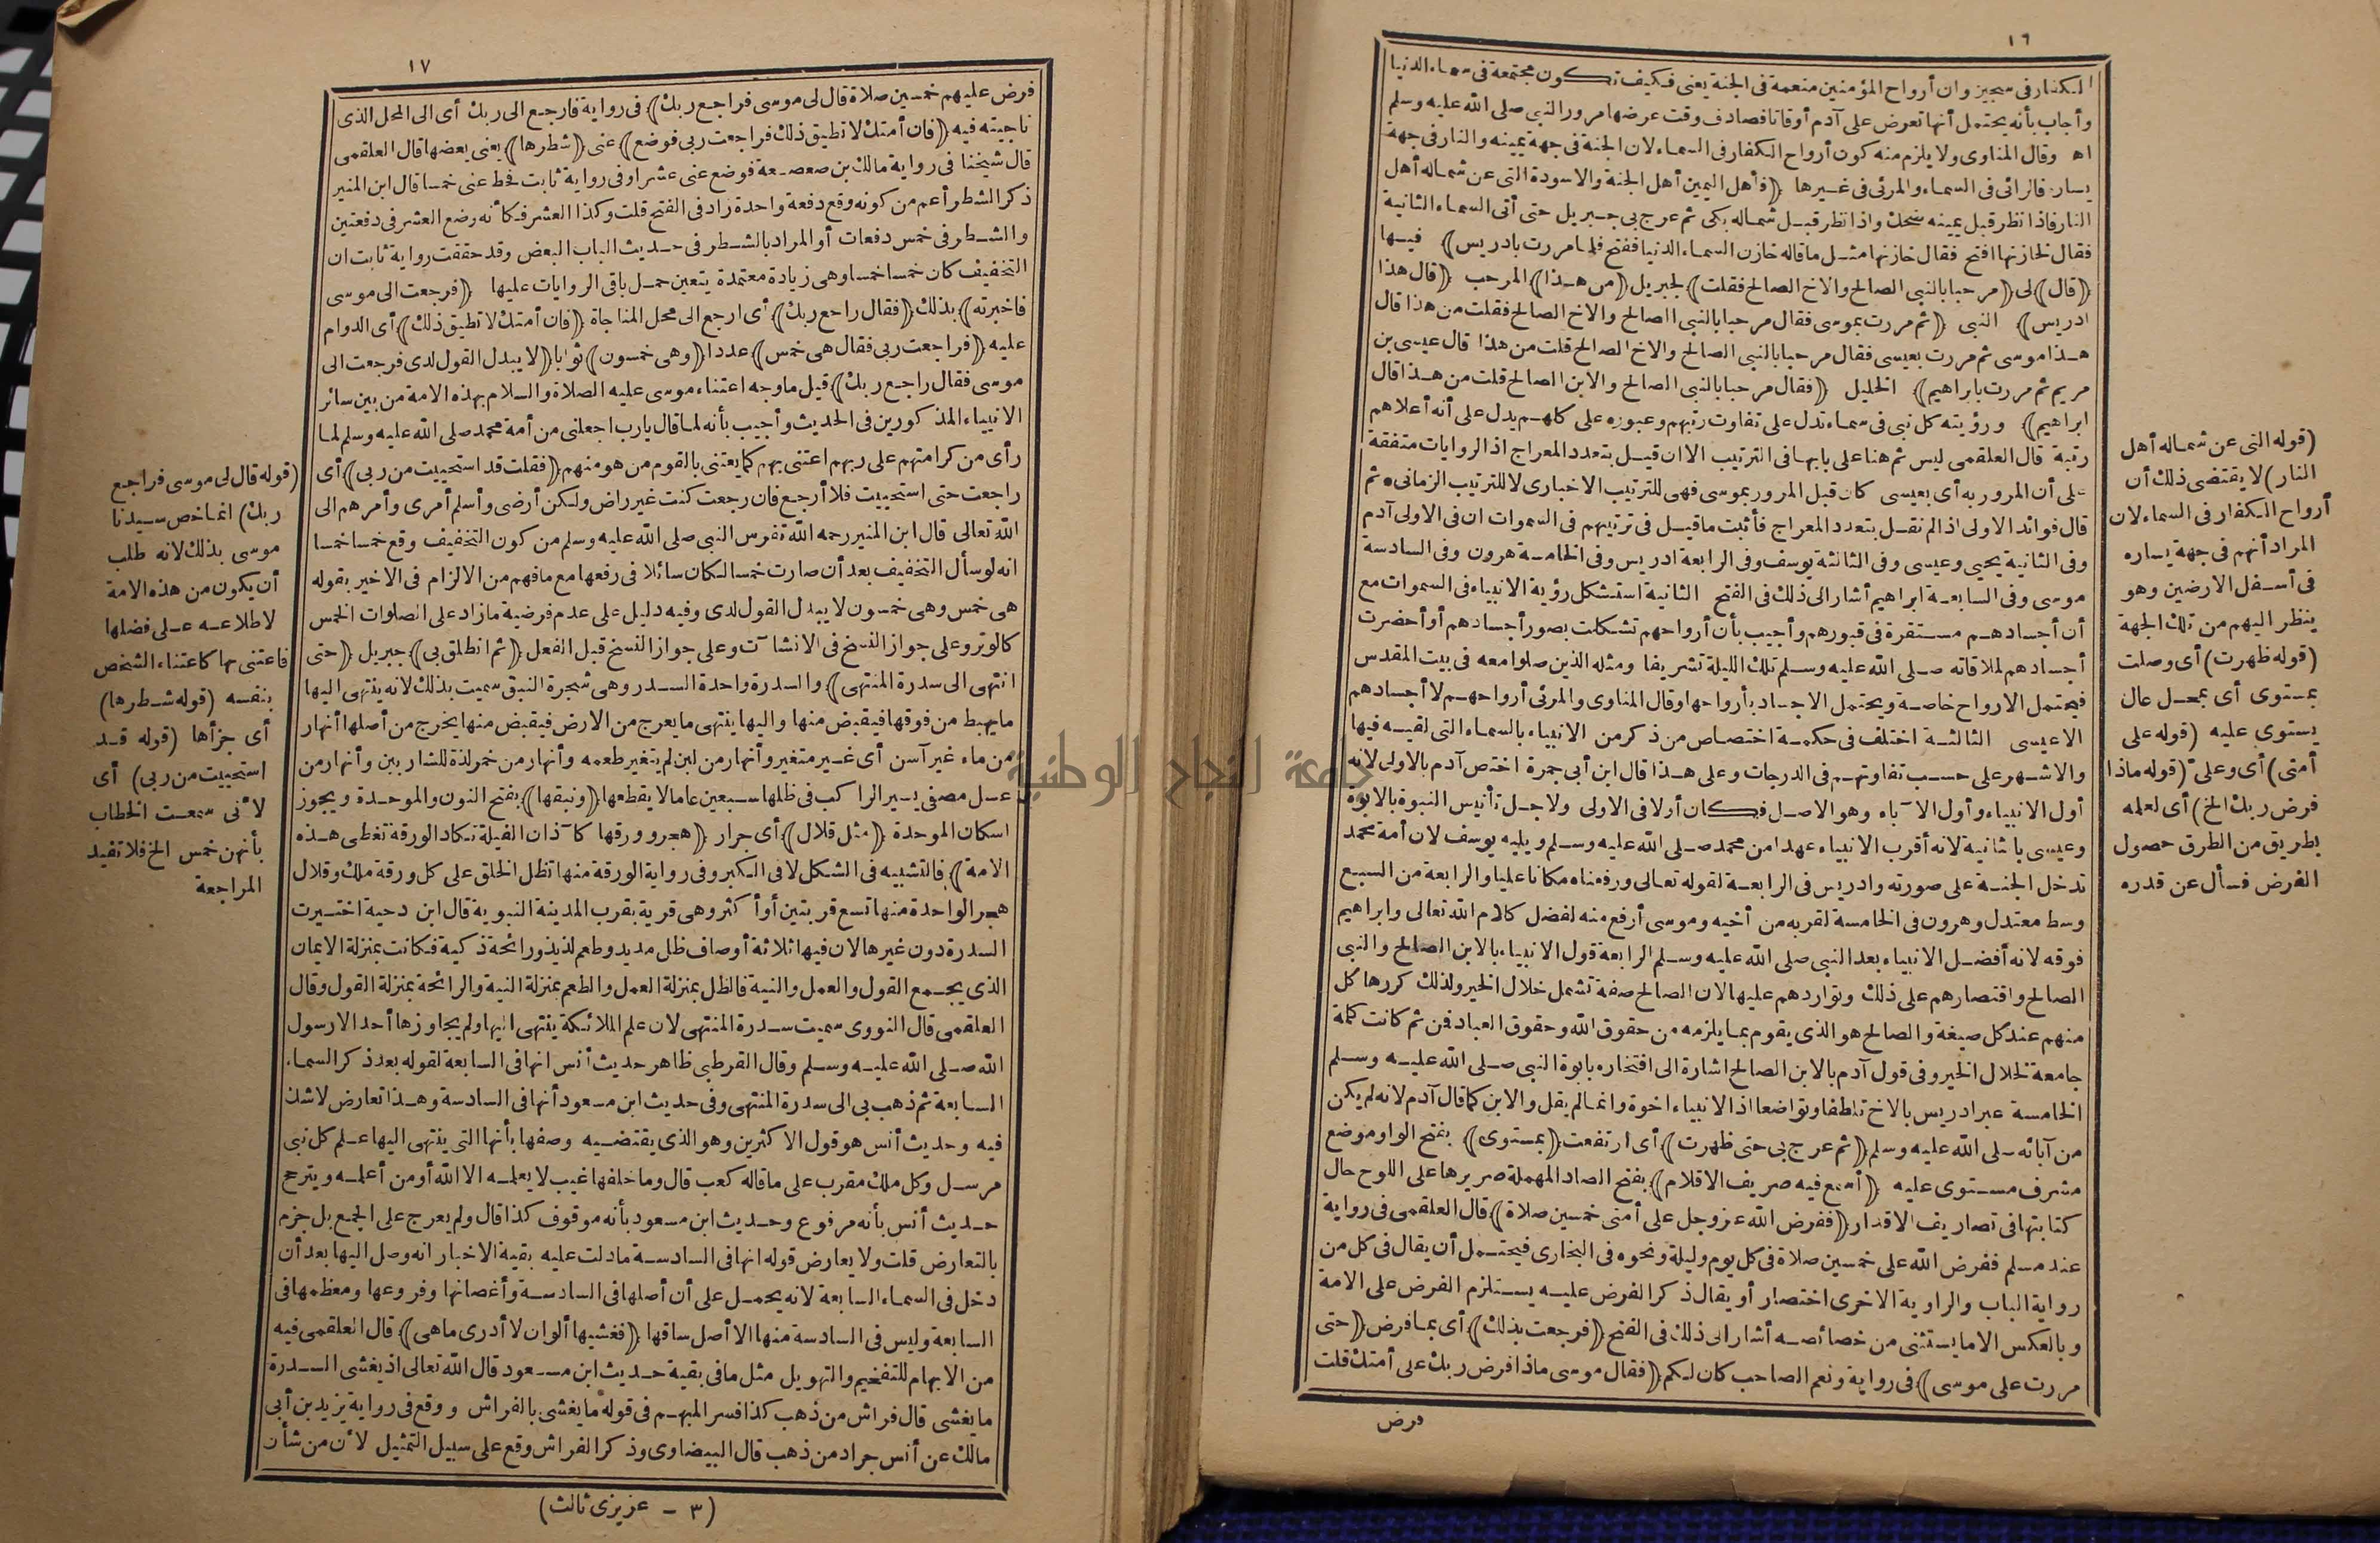 ١٦
الكفار فى سجين وان أرواح المؤمنين منعمة فى الجنة يعنى فكيف تكون مجتمعة فى سماء الدنيا
وأجاب بأنه يحتمل أنها تعرض على آدم أوقاتا فصادف وقت عرضها مرور النبى صلى الله عليه وسلم
اه وقال المناوى ولا يلزم منه كون أرواح الكفار فى السماء لان الجنة فى جهة يمينه والنار فى جهة
يساره فالرائى فى السماء والمرئى فى غيرها ﴿فأهل اليمين أهل الجنة والاسودة التى عن شماله أهل
النار فاذا نظر قبل يمينه ضحك واذا نظر قبل شماله بكى ثم عرج بى جبريل حتى أتى السماء الثانية
فقال لخازنها افتح فقال خازنها مثل ما قاله خازن السماء الدنيا ففتح فلما مررت بادريس﴾ فيها
﴿قال﴾ لى ﴿مرحبا بالنبى الصالح والاخ الصالح فقلت﴾ لجبريل ﴿من هذا﴾ المرحب ﴿قال هذا
ادريس﴾ النبى ﴿ثم مررت بموسى فقال مرحبا بالنبى الصالح والاخ الصالح فقلت من هذا قال
هذا موسى ثم مررت بعيسى فقال مرحبا بالنبى الصالح والاخ الصالح قلت من هذا قال عيسى بن
مريم ثم مررت بابراهيم﴾ الخليل ﴿فقال مرحبا بالنبى الصالح والابن الصالح قلت من هذا قال
ابراهيم﴾ ورؤيته كل نبى فى سماء تدل على تفاوت رتبهم وعبوره على كلهم يدل على أنه أعلاهم
رتبة قال العلقمى ليس ثم هنا على بابها فى الترتيب الا ان قيل بتعدد المعراج اذ الروايات متفقة
على أن المرور به أى بعيسى كان قبل المرور بموسى فهى للترتيب الاخبارى لا للترتيب الزمانى ثم
قال فوائد الاولى اذ لم نقل بتعدد المعراج فأثبت ما قيل فى ترتيبهم فى السموات ان فى الاولى آدم
وفى الثانية يحيى وعيسى وفى الثالثة يوسف وفى الرابعة ادريس وفى الخامسة هرون وفى السادسة
موسى وفى السابعة ابراهيم أشار الى ذلك فى الفتح الثانية استشكل رؤية الانبياء فى السموات مع
أن أجسادهم مستقرة فى قبورهم وأجيب بأن أرواحهم تشكلت بصور أجسادهم أو أحضرت
أجسادهم لملاقاته صلى الله عليه وسلم تلك الليلة تشريفا ومثله الذين صلوا معه فى بيت المقدس
فيحتمل الارواح خاصة ويحتمل الاجساد بأرواحها وقال المناوى والمرئى أرواحهم لا أجسادهم
الا عيسى الثالثة اختلف فى حكمة اختصاص من ذكر من الانبياء بالسماء التى لقيه فيها
والاشهر على حسب تفاوتهم فى الدرجات وعلى هذا قال ابن أبى جمرة اختص آدم بالاولى لانه
أول الانبياء وأول الآباء وهو الاصل فكان أولا فى الاولى ولاجل تأنيس النبوة بالابوة
وعيسى بالثانية لانه أقرب الانبياء عهدا من محمد صلى الله عليه وسلم ويليه يوسف لان أمة محمد
تدخل الجنة على صورته وادريس فى الرابعة لقوله تعالى ورفعناه مكانا عليا والرابعة من السبع
وسط معتدل وهرون فى الخامسة لقربه من أخيه وموسى أرفع منه لفضل كلام الله تعالى وابراهيم
فوقه لانه أفضل الانبياء بعد النبى صلى الله عليه وسلم الرابعة قول الانبياء بالابن الصالح والنبى
الصالح واقتصارهم على ذلك وتواردهم عليها لان الصالح صفة تشمل خلال الخير ولذلك كررها كل
منهم عند كل صيغة والصالح هو الذى يقوم بما يلزمه من حقوق الله وحقوق العباد فمن ثم كانت كلمة
جامعة لخلال الخير وفى قول آدم بالابن الصالح اشارة الى افتخاره بابوة النبى صلى الله عليه وسلم
الخامسة عبر ادريس بالاخ تلطفا وتواضعا اذ الانبياء اخوة وانما لم يقل والابن كما قال آدم لانه لم يكن
من آبائه صلى الله عليه وسلم ﴿ثم عرج بى حتى ظهرت﴾ أى ارتفعت ﴿بمستوى﴾ بفتح الواو موضع
مشرف مستوى عليه ﴿أسمع فيه صريف الاقلام﴾ بفتح الصاد المهملة صريرها على اللوح حال
كتابتها فى تصاريف الاقدار ﴿ففرض الله عز وجل على أمتى خمسين صلاة﴾ قال العلقمى فى رواية
عند مسلم ففرض الله على خمسين صلاة فى كل يوم وليلة ونحوه فى البخارى فيحتمل أن يقال فى كل من
رواية الباب والراوية الاخرى اختصار أو يقال ذكر الفرض عليه يستلزم الفرض على الامة
وبالعكس الا ما يستثنى من خصائصه أشار الى ذلك فى الفتح ﴿فرجعت بذلك﴾ أى بما فرض ﴿حتى
مررت على موسى﴾ فى رواية ونعم الصاحب كان لكم ﴿فقال موسى ماذا فرض ربك على أمتك قلت
فرض
(قوله التى عن شماله أهل
النار) لا يقتضى ذلك أن
أرواح الكفار فى السماء لان
المراد أنهم فى جهة يساره
فى أسفل الارضين وهو
ينظر اليهم من تلك الجهة
(قوله ظهرت) أى وصلت
بمستوى أى بمحل عال
يستوى عليه (قوله على
أمتى) أى وعلى (قوله ماذا
فرض ربك الخ) أى لعلمه
بطريق من الطرق حصول
الفرض فسأل عن قدره
١٧
فرض عليهم خمسين صلاة قال لى موسى فراجع ربك﴾ فى رواية فارجع الى ربك أى الى المحل الذى
ناجيته فيه ﴿فان أمتك لا تطيق ذلك فراجعت ربى فوضع﴾ عنى ﴿شطرها﴾ يعنى بعضها قال العلقمى
قال شيخنا فى رواية مالك بن صعصعة فوضع عنى عشرا وفى رواية ثابت فحط عنى خمسا قال ابن المنير
ذكر الشطر أعم من كونه وقع دفعة واحدة زاد فى الفتح قلت وكذا العشر فكأنه وضع العشر فى دفعتين
والشطر فى خمس دفعات أو المراد بالشطر فى حديث الباب البعض وقد حققت رواية ثابت ان
التخفيف كان خمسا خمسا وهى زيادة معتمدة يتعين حمل باقى الروايات عليها ﴿فرجعت الى موسى
فاخبرته﴾ بذلك ﴿فقال راجع ربك﴾ أى ارجع الى محل المناجاة ﴿فان أمتك لا تطيق ذلك﴾ أى الدوام
عليه ﴿فراجعت ربى فقال هى خمس﴾ عددا ﴿وهى خمسون﴾ ثوابا ﴿لا يبدل القول لدى فرجعت الى
موسى فقال راجع ربك﴾ قيل ما وجه اعتناء موسى عليه الصلاة والسلام بهذه الامة من بين سائر
الانبياء المذكورين فى الحديث وأجيب بأنه لما قال يارب اجعلنى من أمة محمد صلى الله عليه وسلم لما
رأى من كرامتهم على ربهم اعتنى بهم كما يعتنى بالقوم من هو منهم ﴿فقلت قد استحييت من ربى﴾ أى
راجعت حتى استحييت فلا أرجع فان رجعت كنت غير راض ولكن أرضى وأسلم أمرى وأمرهم الى
الله تعالى قال ابن المنير رحمه الله تفرس النبى صلى الله عليه وسلم من كون التخفيف وقع خمسا خمسا
انه لو سأل التخفيف بعد أن صارت خمسا لكان سائلا فى رفعها مع ما فهم من الالزام فى الاخير بقوله
هى خمس وهى خمسون لا يبدل القول لدى وفيه دليل على عدم فرضية ما زاد على الصلوات الخمس
كالوتر وعلى جواز النسخ فى الانشاآت وعلى جواز النسخ قبل الفعل ﴿ثم انطلق بى﴾ جبريل ﴿حتى
انتهى الى سدرة المنتهى﴾ والسدرة واحدة السدر وهى شجرة النبق سميت بذلك لانه ينتهى اليها
ما يهبط من فوقها فيقبض منها واليها ينتهى ما يعرج من الارض فيقبض منها يخرج من أصلها أنهار
من ماء غير آسن أى غير متغير وأنهار من لبن لم يتغير طعمه وأنهار من خمر لذة للشاربين وأنهار من
عسل مصفى يسير الراكب فى ظلها سبعين عاما لا يقطعها ﴿ونبقها﴾ بفتح النون والموحدة ويجوز
اسكان الموحدة ﴿مثل قلال﴾ أى جرار ﴿هجر وورقها كآذان الفيلة تكاد الورقة تغطى هذه
الامة﴾ فالتشبيه فى الشكل لا فى الكبر وفى رواية الورقة منها تظل الخلق على كل ورقة ملك وقلال
هجر الواحدة منها تسع قربتين أو أكثر وهى قرية بقرب المدينة النبوية قال ابن دحية اختيرت
السدرة دون غيرها لان فيها ثلاثة أوصاف ظل مديد وطعم لذيذ ورائحة ذكية فكانت بمنزلة الايمان
الذى يجمع القول والعمل والنية فالظل بمنزلة العمل والطعم بمنزلة النية والرائحة بمنزلة القول وقال
العلقمى قال النووى سميت سدرة المنتهى لان علم الملائكة ينتهى اليها ولم يجاوزها أحد الا رسول
الله صلى الله عليه وسلم وقال القرطبى ظاهر حديث أنس انها فى السابعة لقوله بعد ذكر السماء
السابعة ثم ذهب بى الى سدرة المنتهى وفى حديث ابن مسعود أنها فى السادسة وهذا تعارض لا شك
فيه وحديث أنس هو قول الاكثرين وهو الذى يقتضيه وصفها بأنها التى ينتهى اليها علم كل نبى
مرسل وكل ملك مقرب على ما قاله كعب قال وما خلفها غيب لا يعلمه الا الله أو من أعلمه ويترجح
حديث أنس بأنه مرفوع وحديث ابن مسعود بأنه موقوف كذا قال ولم يعرج على الجمع بل جزم
بالتعارض قلت ولا يعارض قوله انها فى السادسة ما دلت عليه بقية الاخبار انه وصل اليها بعد أن
دخل فى السماء السابعة لانه يحمل على أن أصلها فى السادسة وأغصانها وفروعها ومعظمها فى
السابعة وليس فى السادسة منها الا أصل ساقها ﴿فغشيها ألوان لا أدرى ما هى﴾ قال العلقمى فيه
من الابهام للتفخيم والتهويل مثل ما فى بقية حديث ابن مسعود قال الله تعالى اذ يغشى السدرة
ما يغشى قال فراش من ذهب كذا فسر المبهم فى قوله ما يغشى بالفراش ووقع فى رواية يزيد بن أبى
مالك عن أنس جراد من ذهب قال البيضاوى وذكر الفراش وقع على سبيل التمثيل لأن من شأن
(٣ - عزيزى ثالث)
(قوله قال لى موسى فراجع
ربك) انما خص سيدنا
موسى بذلك لانه طلب
أن يكون من هذه الامة
لاطلاعه على فضلها
فاعتنى بها كاعتناء الشخص
بنفسه (قوله شطرها)
أى جزأها (قوله قد
استحييت من ربى) أى
لأنى سمعت الخطاب
بأنهن خمس الخ فلا تفيد
المراجعة
جامعة النجاح الوطنية